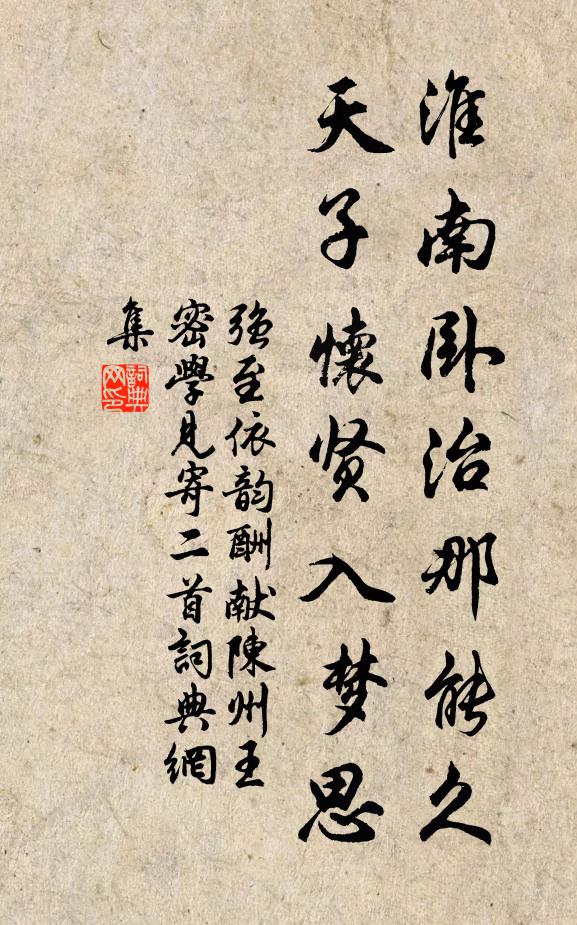 淮南卧治那能久
天子懷贤入梦思
强至依韵酬献陳州王
密學見寄二首詞典網
集
詞典
网印